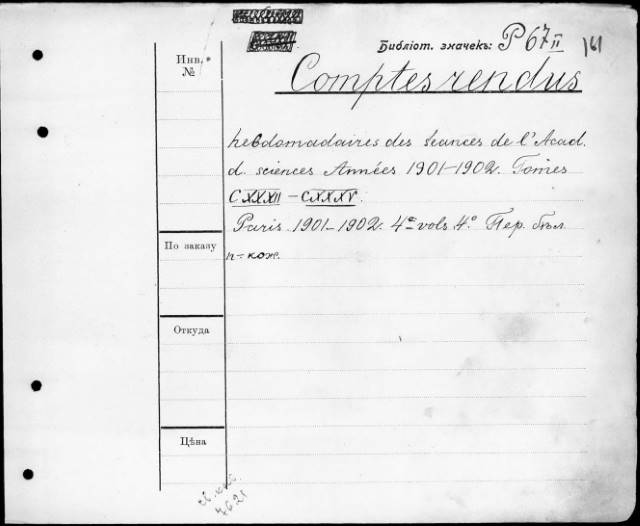 Библіот. значекъ: P 67 II 161
Инв.
№
Comptes rendus
hebdomadaires des séances de l'Acad.
d. sciences Années 1901–1902. Tomes
CXXXII – CXXXV.
Paris. 1901–1902. 4 vols. 4.º Пер. бѣл.
п-кож.
По заказу
Откуда
Цѣна
4621